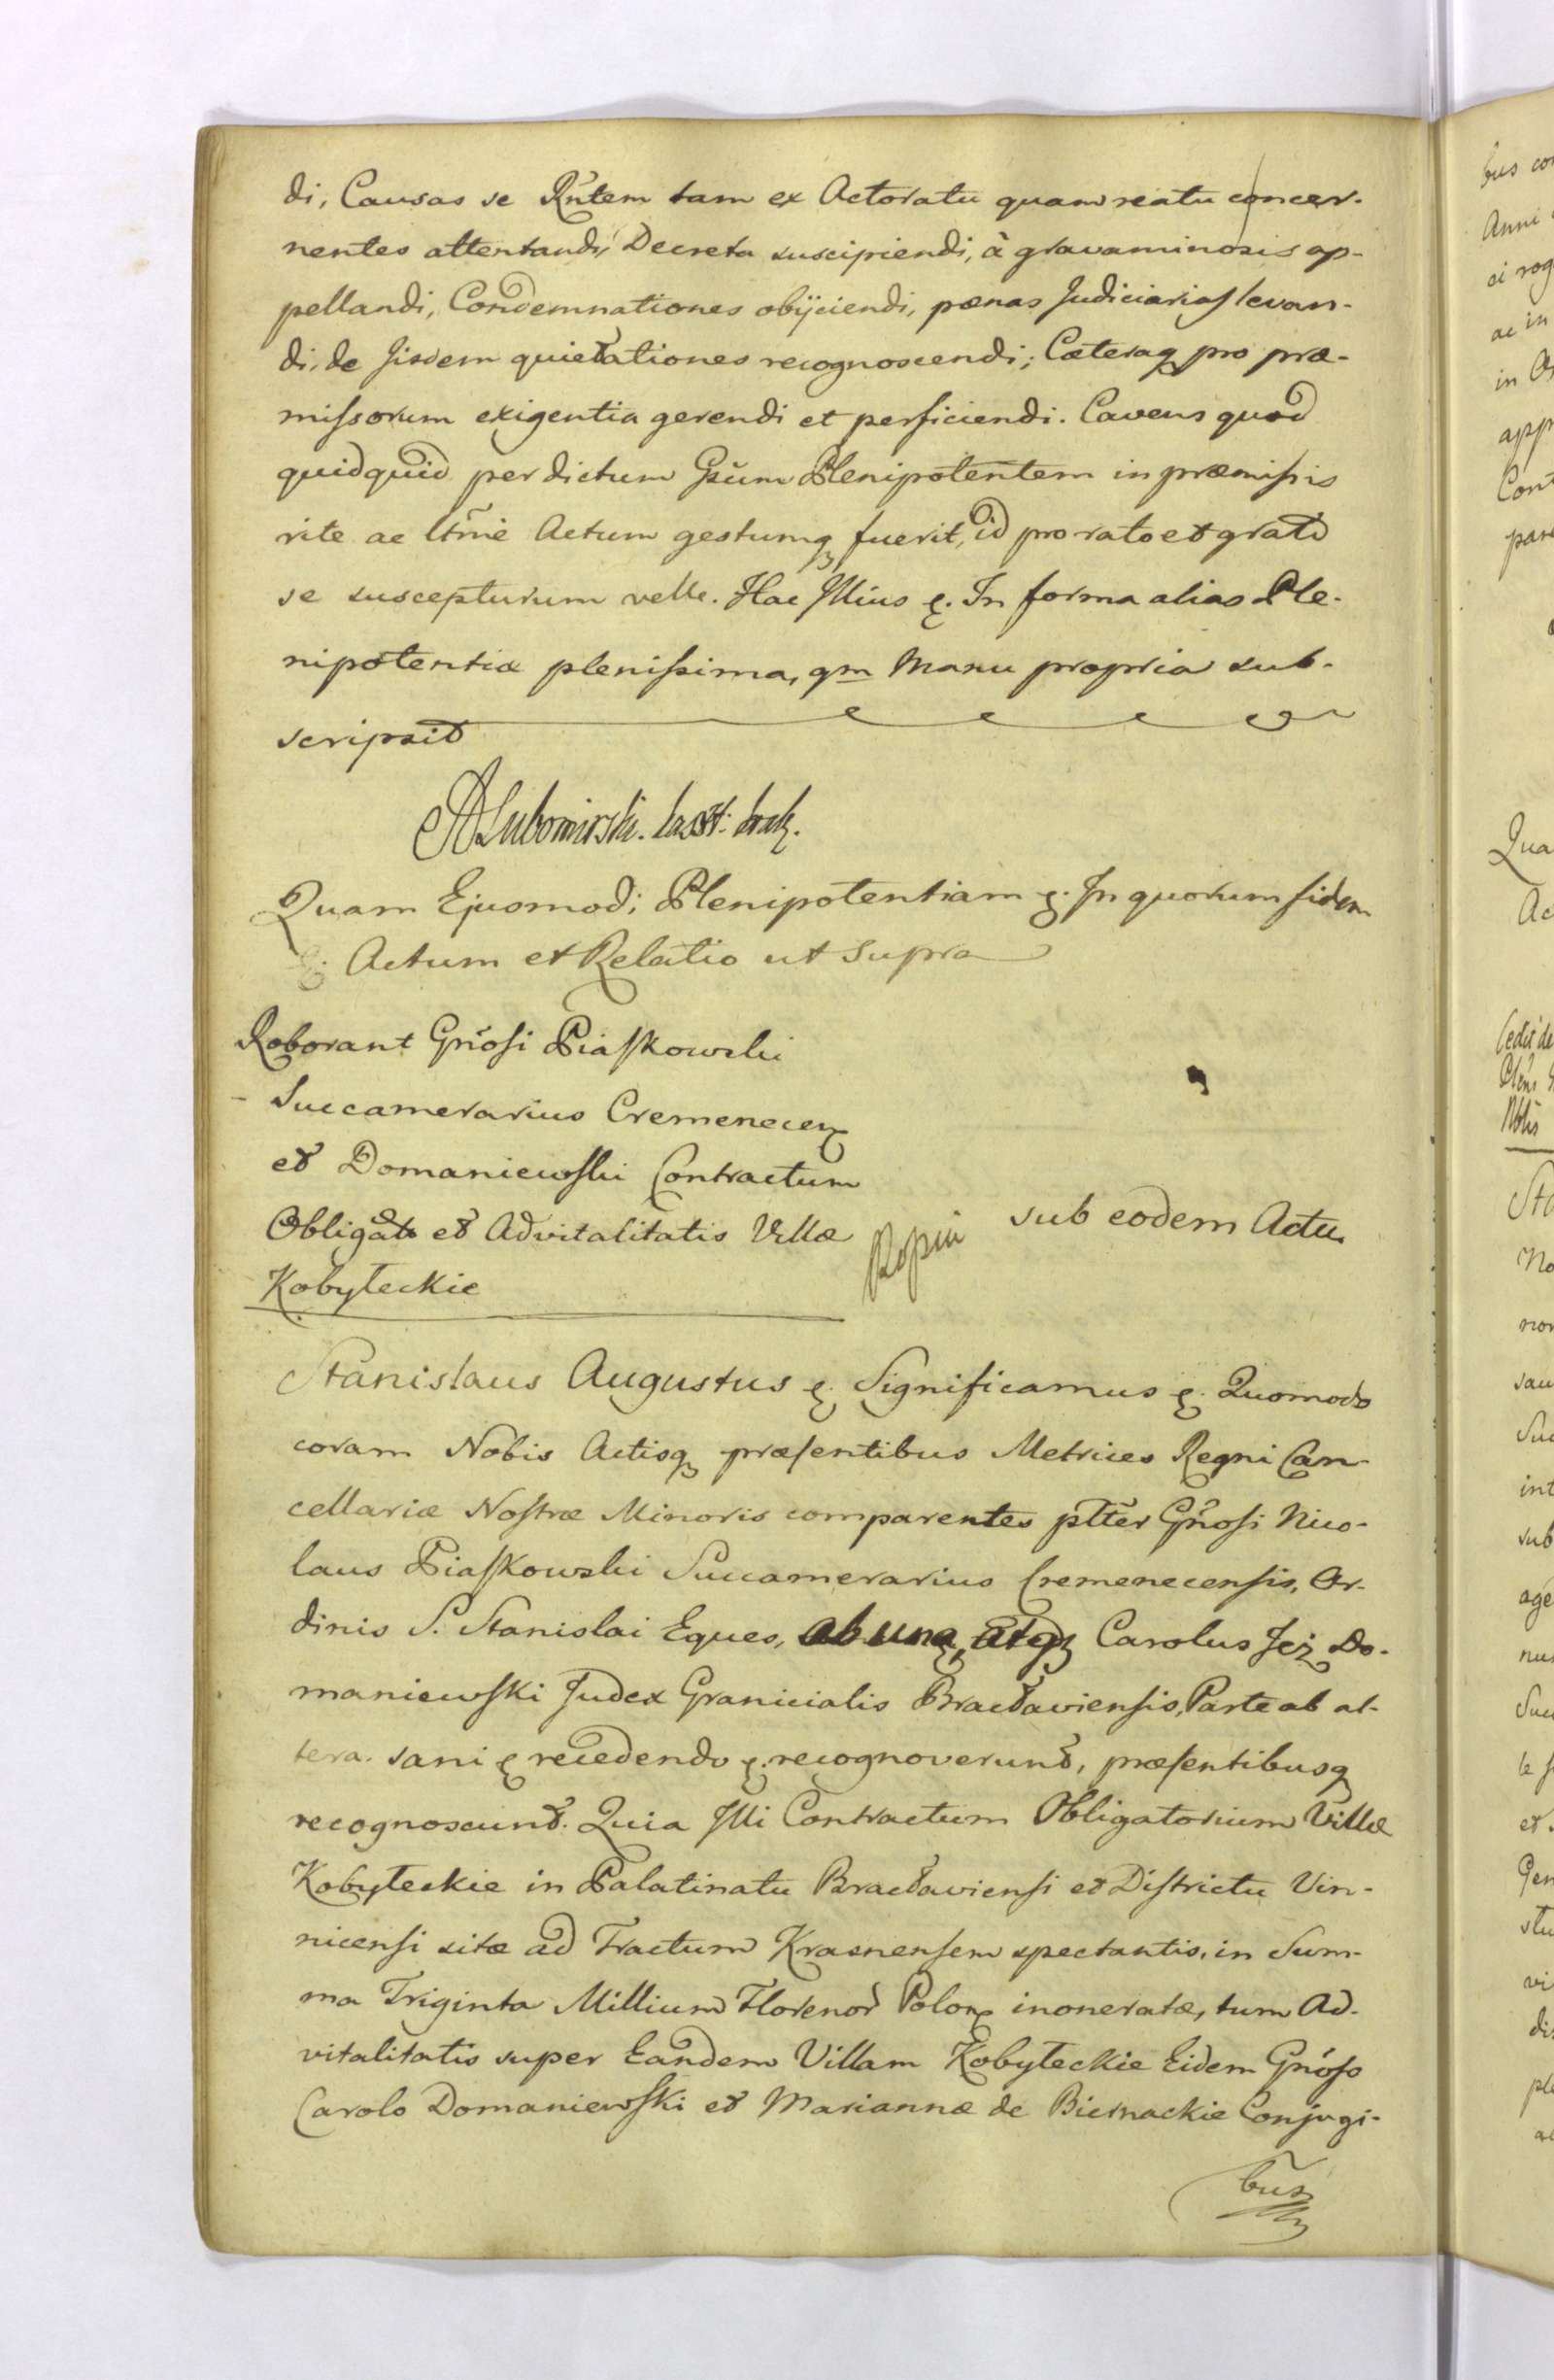 di, Causas se Rñtem tam ex Actoratu quam reatu concer-
nentes attentandi, Decreta suscipiendi, à gravaminosis ap-
pellandi, Condemnationes obijciendi, pœnas Judiciarias levan-
di, de Jisdem quietationes recognoscendi; Cæteraq pro præ-
missorum exigentia gerendi et perficiendi. Cavens quod
quidquid per dictum Gsum Plenipotentem in præmissis
rite ac ltmè Actum gestumq fuerit, id pro rato et grato
se suscepturum velle. Hac Illius &. In forma alias Ple-
nipotentia plenissima, qm Manu propria sub-
scripsit
A Lubomirski.
Quam Ejusmodi Plenipotentiam &. In quorum fidem
&. Actum et Relatio ut supra
Roborant Gñosi Piaskowski
Succamerarius Cremenecen
et Domaniewski Contractum
Obligato et Advitalitatis Villæ
Kobyłeckie
sub eodem Actu
Stanislaus Augustus &. Significamus &. Quomodo
coram Nobis Actisq præsentibus Metrices Regni Can-
cellariæ Nostræ Minoris comparentes plter Gñosi Nico-
laus Piaskowski Succamerarius Cremenecensis, Or-
dinis S. Stanislai Eques, ab una, atq Carolus Jeż Do-
maniewski Judex Granicialis Bracłaviensis, Parte ab al-
tera. sani & recedendo &. recognoverunt, præsentibusq
recognoscunt. Quia Illi Contractum Obligatorium Villæ
Kobyłeckie in Palatinatu Bracłaviensi et Districtu Vin-
nicensi sitæ ad Tractum Krasnensem spectantis, in Sum-
ma Triginta Millium Florenor Polon inoneratæ, tum Ad-
vitalitatis super Eandem Villam Kobyłeckie Eidem Gnoso
Carolo Domaniewski et Mariannæ de Biernackie Conjugi-
bus